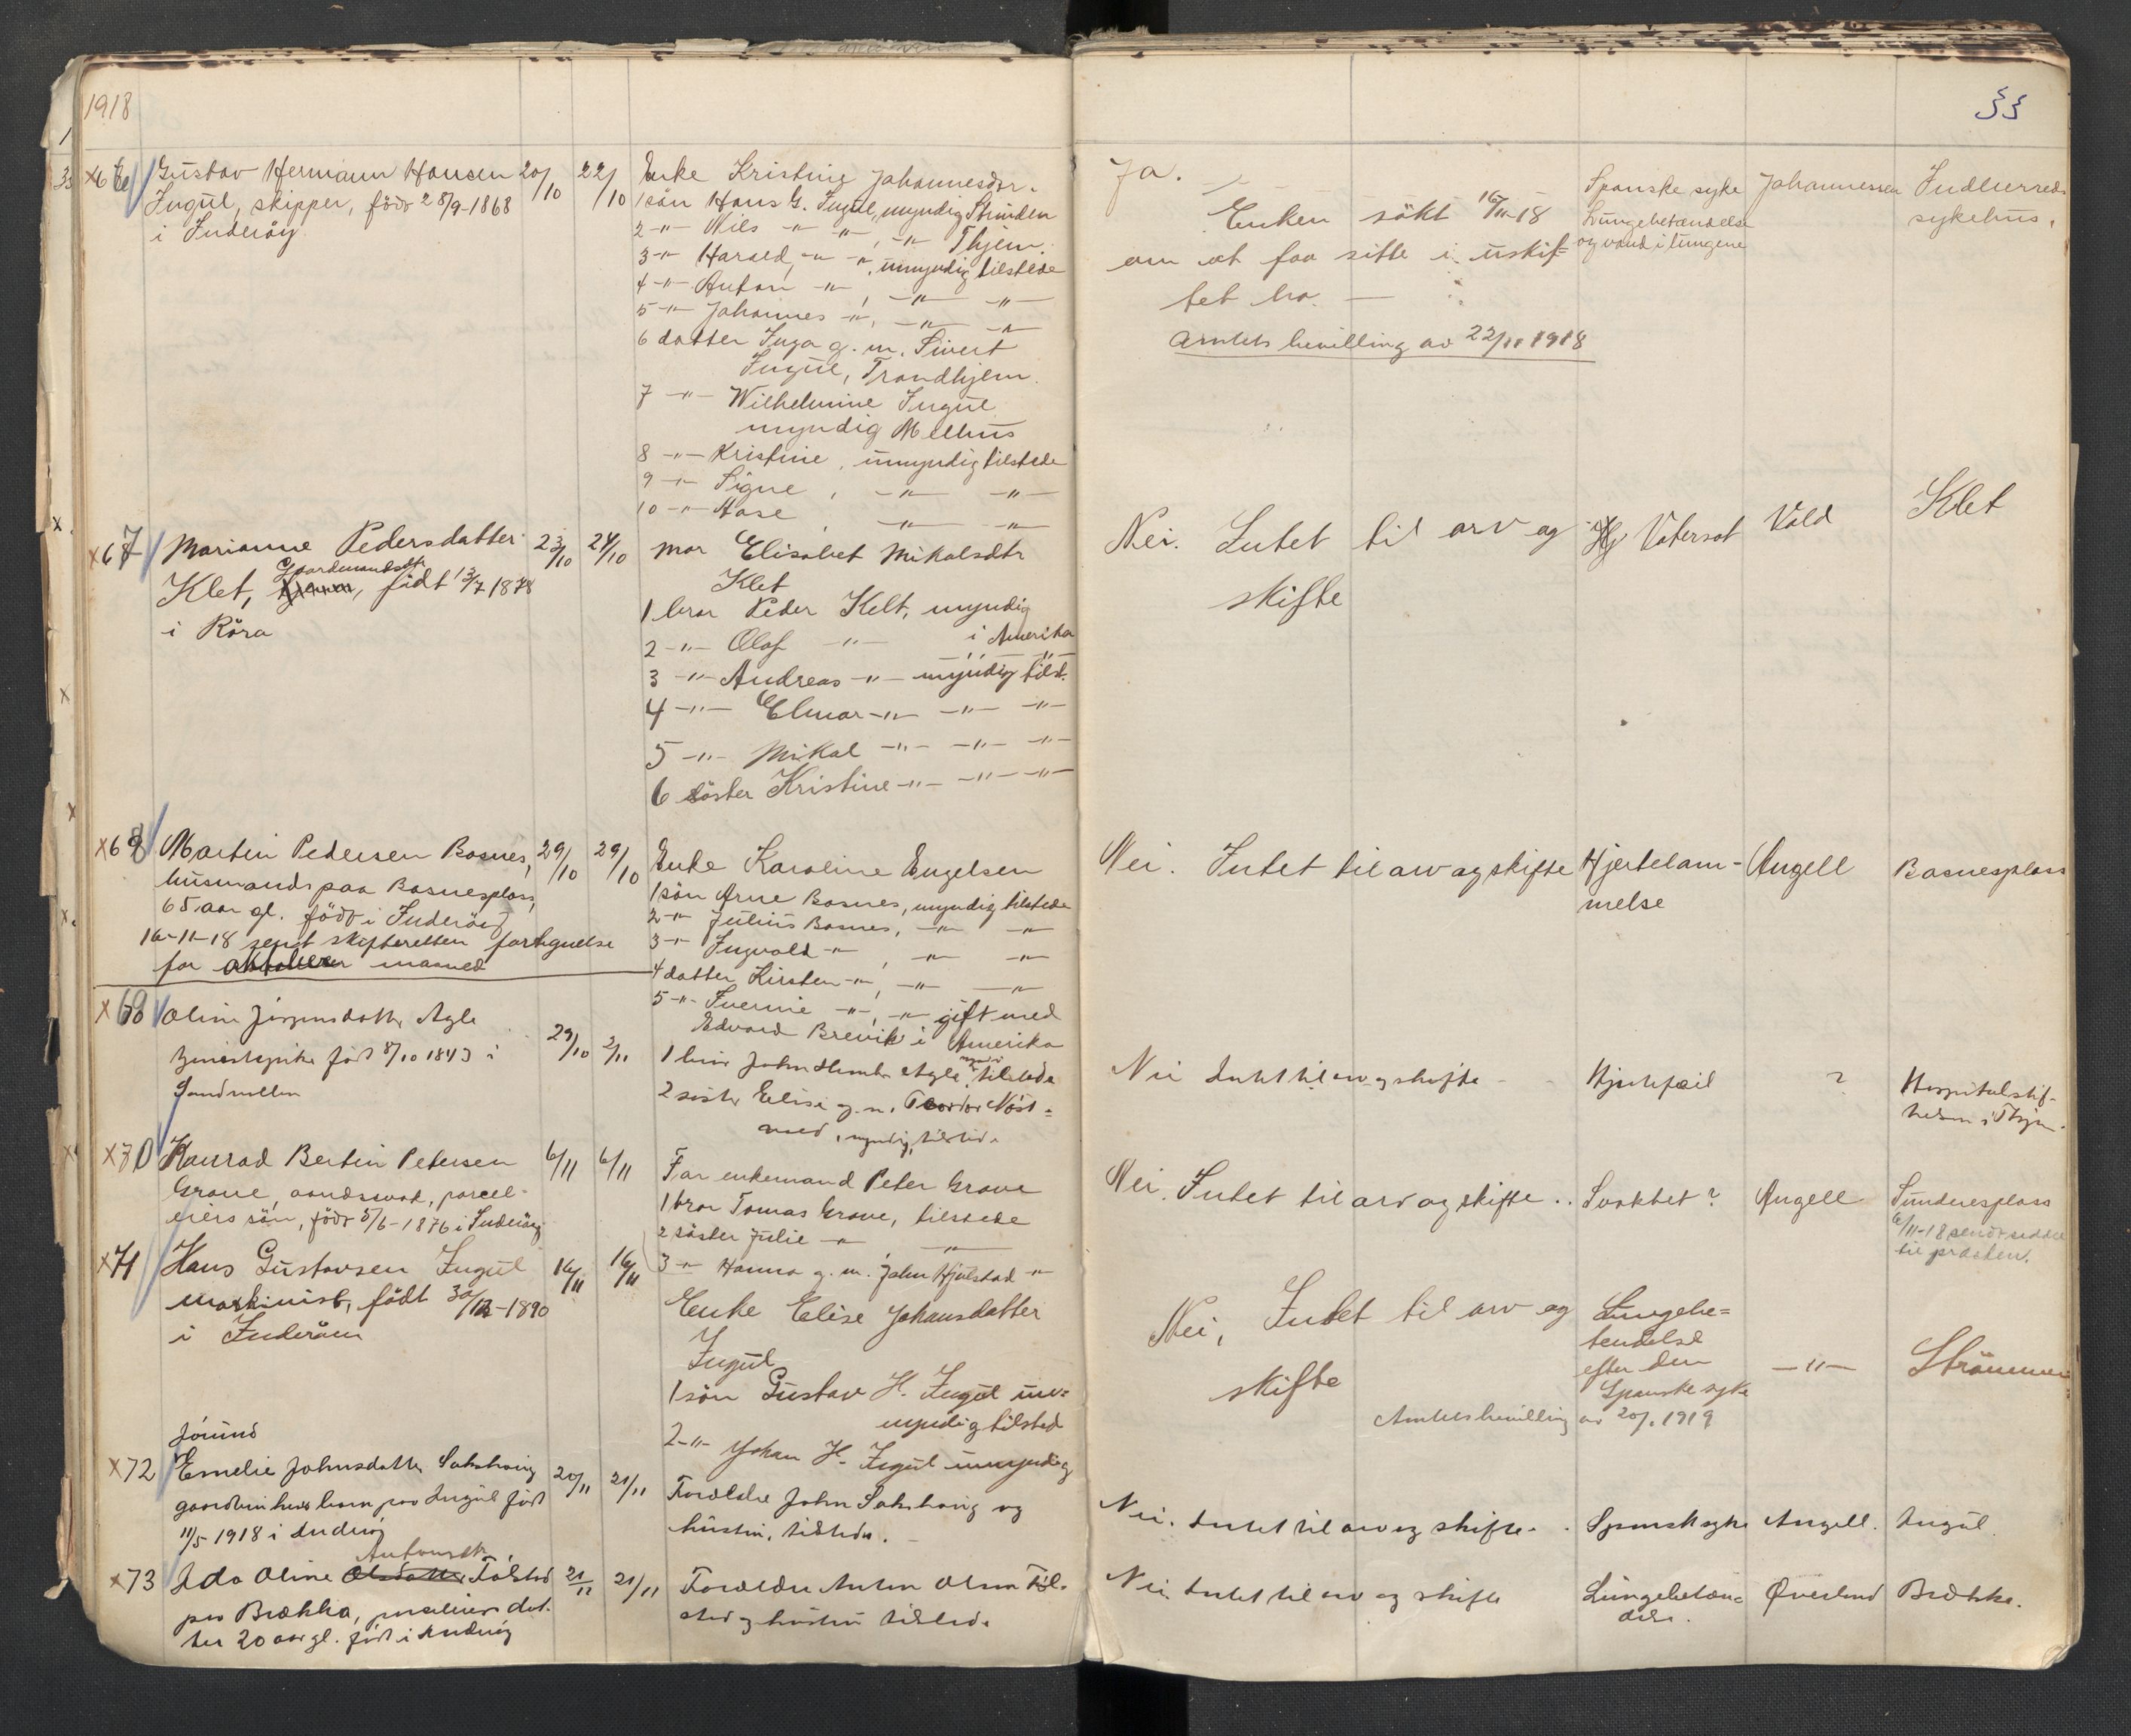 1918
33
x66 Gustav Hermann Hansen 20/10 22/10
Ingul, skipper, född 28/9-1868
i Inderöy
Enke Kristine Johannesdtr.
1 sön Hans G. Ingul, myndig Strinden
2 -"- Nils -"- -"-, -"- Thjem.
3 -"- Harald, -"- -"-, umyndig tilstede
4 -"- Anton -"-, -"- -"-
5 -"- Johannes -"-, -"- -"-
6 datter Inga g. m. Sivert
Ingul, Trondhjem.
7 -"- Wilhelmine Ingul
myndig Melhus
8 -"- Kristine, umyndig tilstede
9 -"- Signe, -"- -"-
10 -"- Aase, -"- -"-
Ja.
Enken sökt 16/11-18
om at faa sitte i uskif-
tet bo.
Amtets bevilling av 22/11 1918
Spanske syke
Lungebetændelse
og vand i lungene
Johannessen
Indherreds
sykehus.
x67 Marianne Pedersdatter 23/10 24/10
Klet, Gaardmandsdtr, födt 13/7 1878
i Röra
Mor Elisabet Mikalsdtr
Klet
1 bror Peder Kelt, myndig
i Amerika
2 -"- Olaf -"- -"- -"-
3 -"- Andreas -"- myndig tilst.
4 -"- Elmar -"- -"- -"-
5 -"- Mikal -"- -"- -"-
6 söster Kristine -"- -"- -"-
Nei. Intet til arv og
skifte
Vatersot
Vold
Klet
x68 Martin Pedersen Bosnes, 29/10 29/10
husmand paa Bosnesplass,
65 aar gl. född i Inderöy
16-11-18 sendt skifteretten fortegnelse
for oktober maaned
Enke Karoline Engelsen
1 sön Arne Bosnes, myndig tilstede
2 -"- Julius Bosnes, -"- -"-
3 -"- Ingvald -"-, -"- -"-
4 datter Kirsten -"-, -"- -"-
5 -"- -"-, -"- gift med
Edvard Brevik i Amerika
Nei. Intet til arv og skifte
Hjertelam-
melse
Angell
Bosnesplass
x69 Oline Jörgensdatter Agle 29/10 2/11
född 8/10 1843 i
Sandvollan
1 bror John Agle myndig tilstede
2 söster Elise g. m. Teodor Nöst-
vold, myndig, tilstede
Nei Intet til arv og skifte
Hjertefeil
?
Hospitalstif-
telsen i Thjem.
x70 Konrad Bertin Petersen 6/11 6/11
Grane, aandssvak, parcel-
eiers sön, född 5/6-1876 i Inderöy
Far enkemand Peter Grane
1 bror Tomas Grane, tilstede
2 söster Julie -"-, -"-
3 -"- Hanna g. m. John Hjulstad -"-
Nei. Intet til arv og skifte..
Svakhet?
Angell
Sundnesplass
6/11-18 sendt seddel
til presten.
x71 Hans Gustavsen Ingul 16/11 16/11
maskinist, födt 30/12-1890
i Inderöen
Enke Elise Johansdatter
Ingul
1 sön Gustav H. Ingul um-
myndig tilsted
2 -"- Johan H. Ingul umyndig
Nei, Intet til arv og
skifte
Amtets bevilling av 20/1 1919
Lungebe-
tendelse
efter den
Spanske syke
-"-
Strömmen
Jörund
x72 Emelie Johnsdatter Sakshaug 20/11 21/11
gaardbrukers barn paa Ingul född
11/5 1918 i Inderöy
Forældre John Sakshaug og
hustru, tilstede.
Nei. Intet til arv og skifte.
Spansk syke
Angell.
Ingul.
Antonsdtr.
x73 Ida Oline Olsdatter Tölstad 21/11 21/11
paa Brækka, parceleiers dat-
ter 20 aar gl. född i Inderöy
Forældre Anton Olsen Töl-
stad og hustru tilstede
Nei. Intet til arv og skifte
Lungebetæn-
delse.
Överland
Brækka.